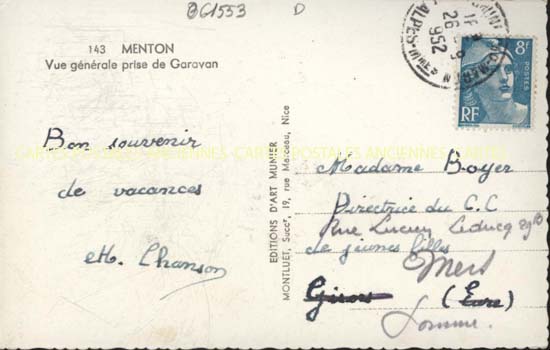 061553 D
143 MENTON
Vue générale prise de Garavan
Bon souvenir
de vacances
M. Chanson
EDITIONS D'ART MUNIER
MONTLUET, Succr, 19, rue Marceau, Nice
CARTES POSTALES ANCIENNES CARTES POSTALES ANCIENNES CARTES
26
952
8F
POSTES
RF
Madame Boyer
Directrice du C.C
Rue Lucien Leducq
de jeunes filles
Mers
Gisors (Eure)
Somme.